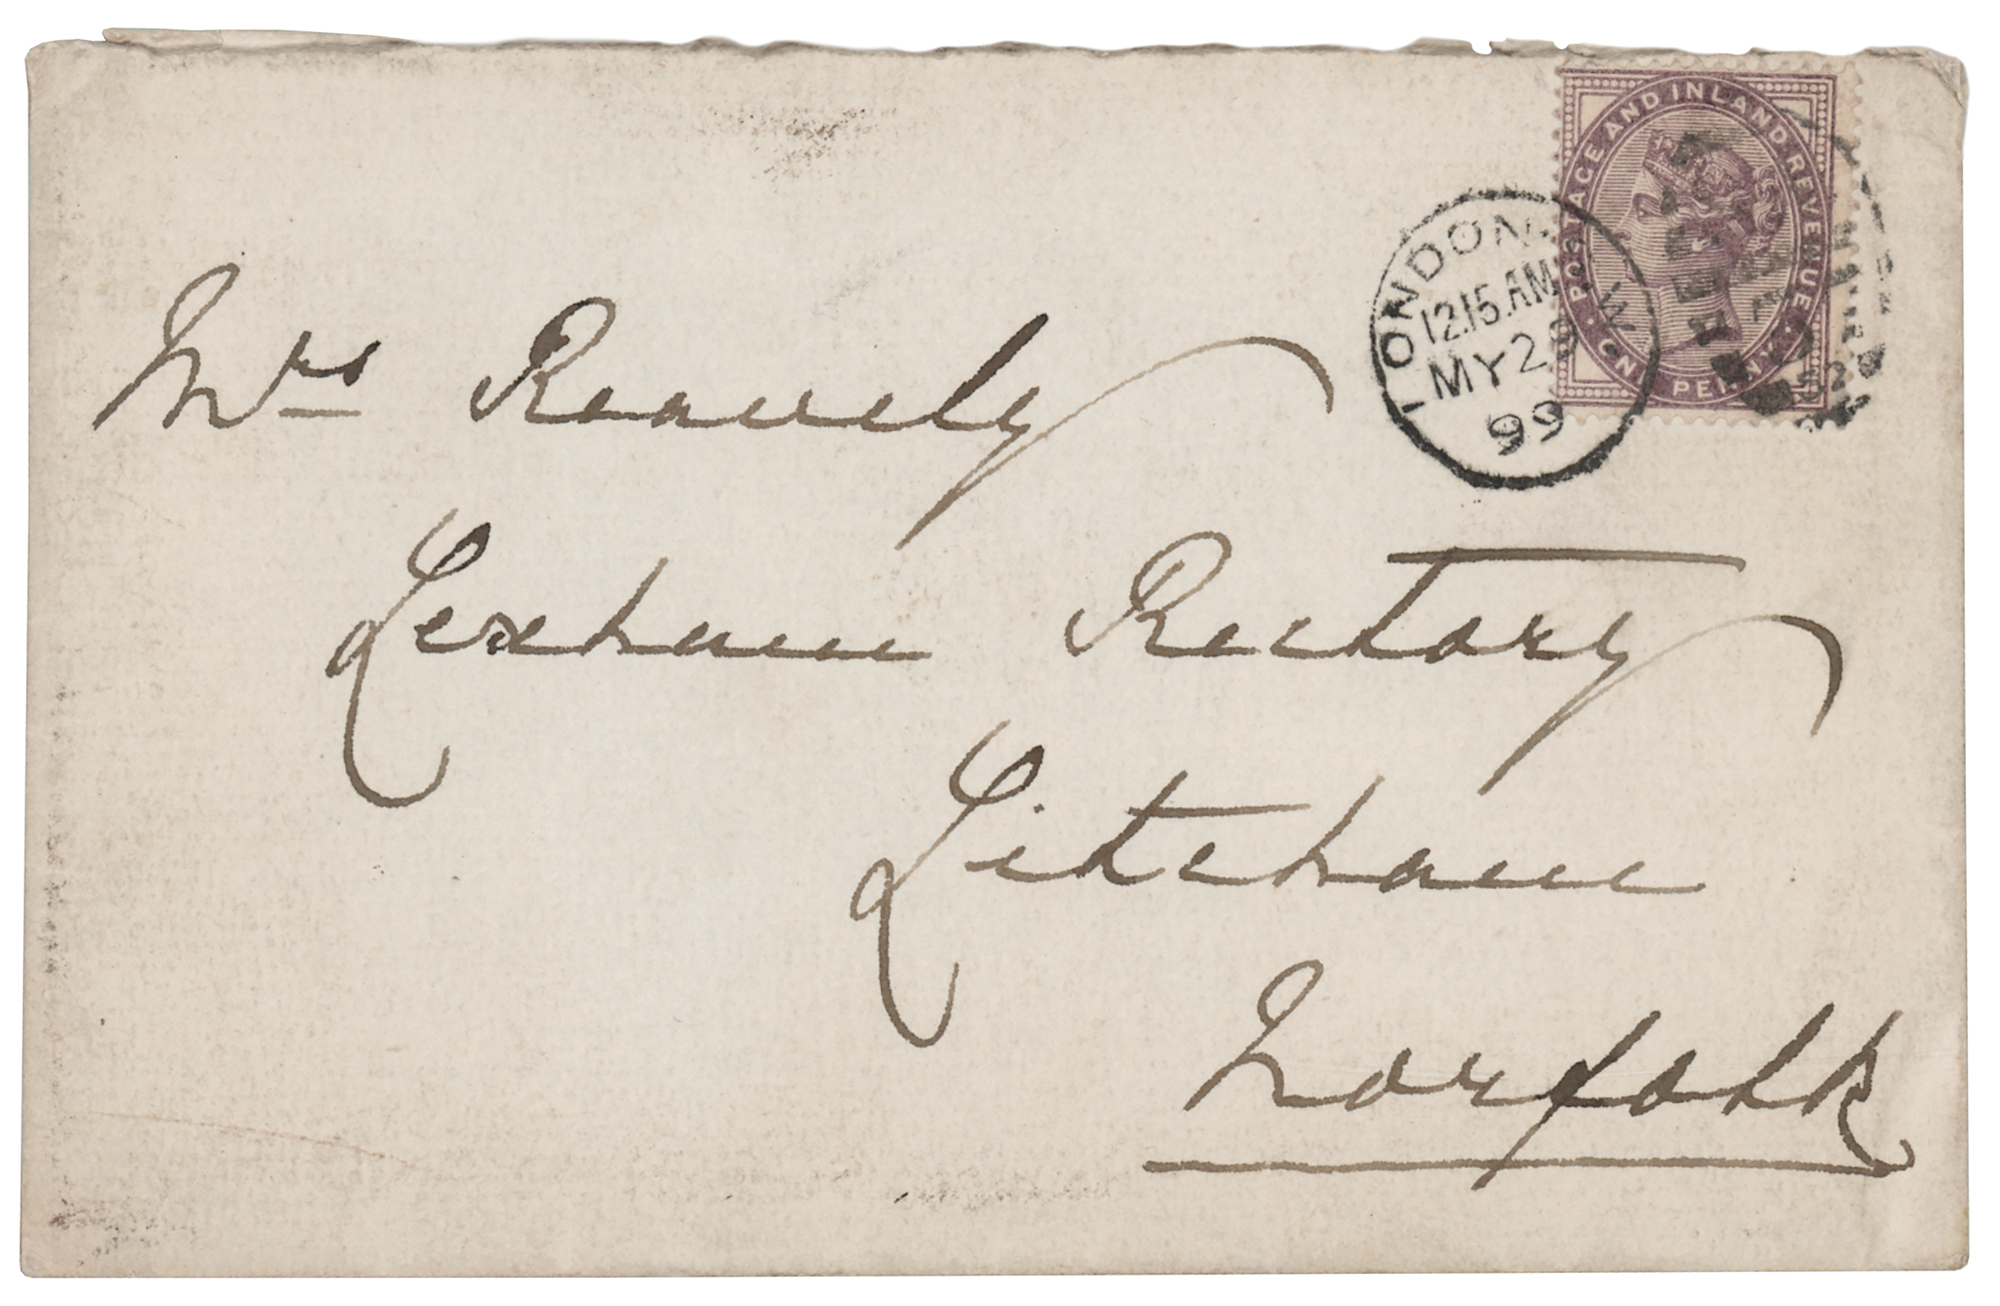 POSTAGE AND INLAND REVENUE
ONE PENNY
LONDON. W.
12.15.AM
MY 29
99
Mrs
Lexham Rectory
Litcham
Norfolk